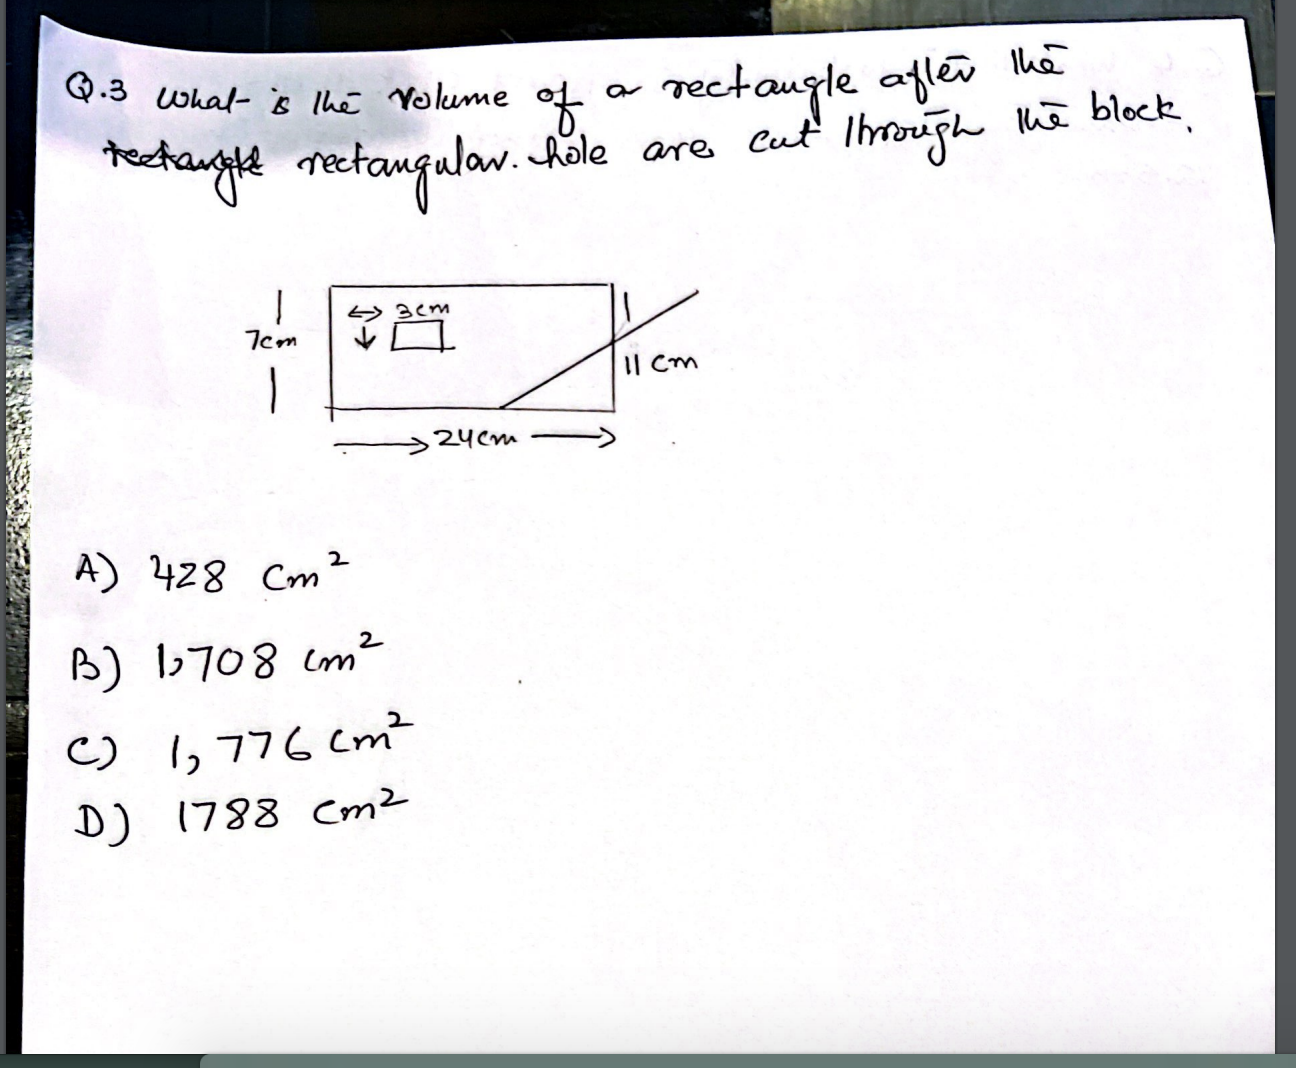 Q.3 What is the volume of a rectangle after the
rectangle rectangular. hole are cut through the block.
↔ 3cm
7cm
11 cm
24cm
A) 428 cm²
B) 1,708 cm²
C) 1,776 cm²
D) 1788 cm²